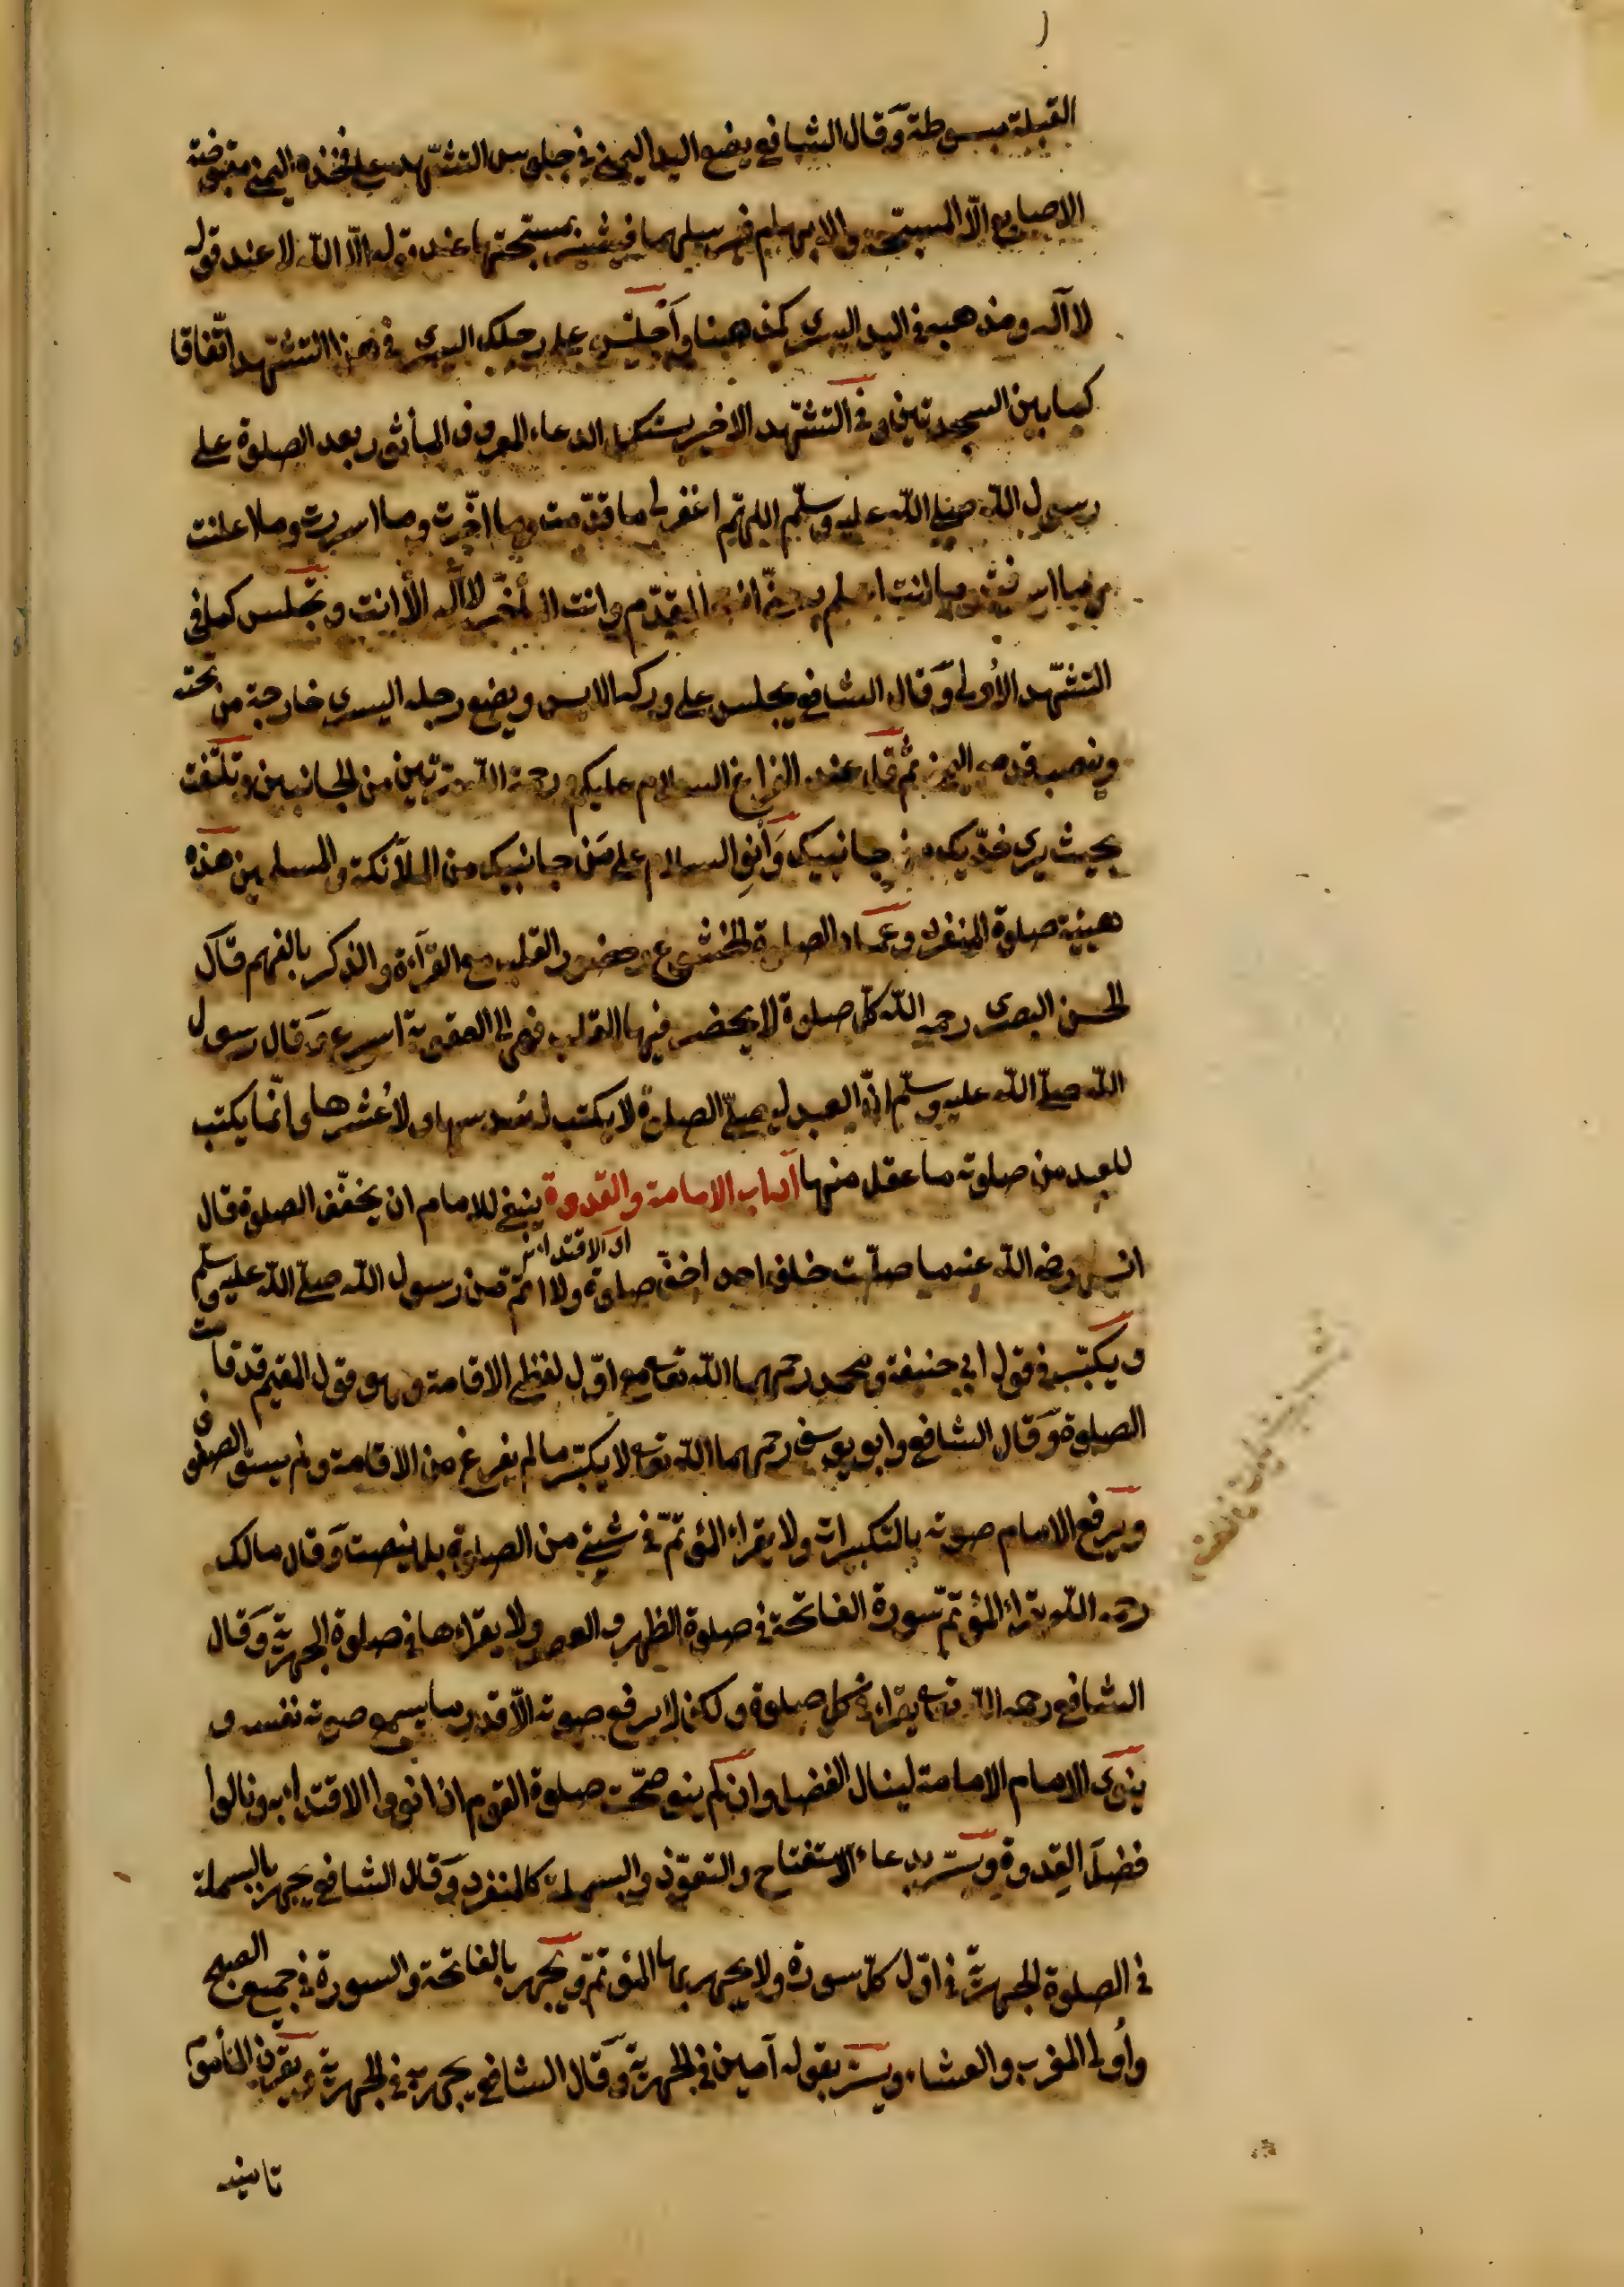 القبلة مبسوطة وقال الشافعي يضع اليد اليمنى في جلوس التشهد على فخذه اليمنى مقبوضة
الاصابع الّا المسبّحة والابهام فيرسلهما فيشير بمسبّحتها عند قوله الّا الله لا عند قوله
لا اله ومذهبه في اليد اليسرى كمذهبنا واَجلس على رجلك اليسرى في هذا التشهّد اتّفاقا
كما بين السجدتين وفي التشهّد الاخير يستكمل الدعاء المعروف المأثور بعد الصلوة على
رسول الله صلى الله عليه وسلّم اللهمّ اغفر لى ما قدّمت وما اخّرت وما اسررت وما اعلنت
وما اسرفت وما انت اعلم به منّى انت المقدّم وانت المؤخّر لا اله الّا انت وتجلس كما فى
التشهّد الاولى وَقال الشافعى يجلس على وركه الايسر ويضع رجله اليسرى خارجة من تحته
وينصب قدمه اليمنى ثم قل عند الفراغ السلام عليكم ورحمة الله مرّتين من الجانبين وتلتفت
بحيث يرى خدّيك من جانبيك وَانوِ السلام على مَن جانبيك من الملآئكة والمسلمين هذه
هيئة صلوة المنفرد وعماد الصلوة الخشوع وحضور القلب مع القرآءة والذكر بالفهم قال
الحسن البصرى رحمه الله كلّ صلوة لا يحضر فيها القلب فهى الى العقوبة اسرع وَقال رسول
الله صلّى الله عليه وسلّم انّ العبد ليصلّى الصلوة لا يكتب له سُدسها ولا عُشرها وانّما يكتب
للعبد من صلوته ما عقل منها آداب الامامة والقدوة ينبغى للامام ان يخفّف الصلوة قال
اى الاقتداء
انس رضى الله عنه ما صلّيت خلف احد اخفّ صلوة ولا اتمّ من رسول الله صلّى الله عليه وسلّم
ويكبّر فى قول ابى حنيفة ومحمد رحمهما الله تعالى مع اوّل لفظى الاقامة وهو قول المقيم قد قامت
الصلوة وَقال الشافعى وابو يوسف رحمهما الله تعالى لا يكبّر ما لم يفرغ من الاقامة ولم يستو الصفوف
ويرفع الامام صوته بالتكبيرات ولا يقراء المؤتمّ فى شيئ من الصلوة بل ينصت وَقال مالك
رحمه الله يقراء المؤتمّ سورة الفاتحة فى صلوة الظهر والعصر ولا يقراءها فى صلوة الجهرية وَقال
الشافعى رحمه الله تعالى يقراء فى كل صلوة ولكن لا يرفع صوته الّا قدر ما يسمع صوته نفسه و
ينوى الامام الامامة لينال الفضل وان لم ينو صحّت صلوة القوم اذا نووا الاقتداء به ونالوا
فضلَ القدوة ويسرّ بدعاء الاستفتاح والتعوّذ والبسملة كالمنفرد وَقال الشافعى يجهر بالبسملة
فى الصلوة الجهريّة فى اوّل كلّ سورة ولا يجهر بها المؤتمّ ويجهر بالفاتحة والسورة فى جميع الصبح
وأولى المغرب والعشاء ويسرّ بقوله آمين فى الجهرية وَقال الشافعى يجهر به فى الجهرية ويقرن المأموم
تامينه